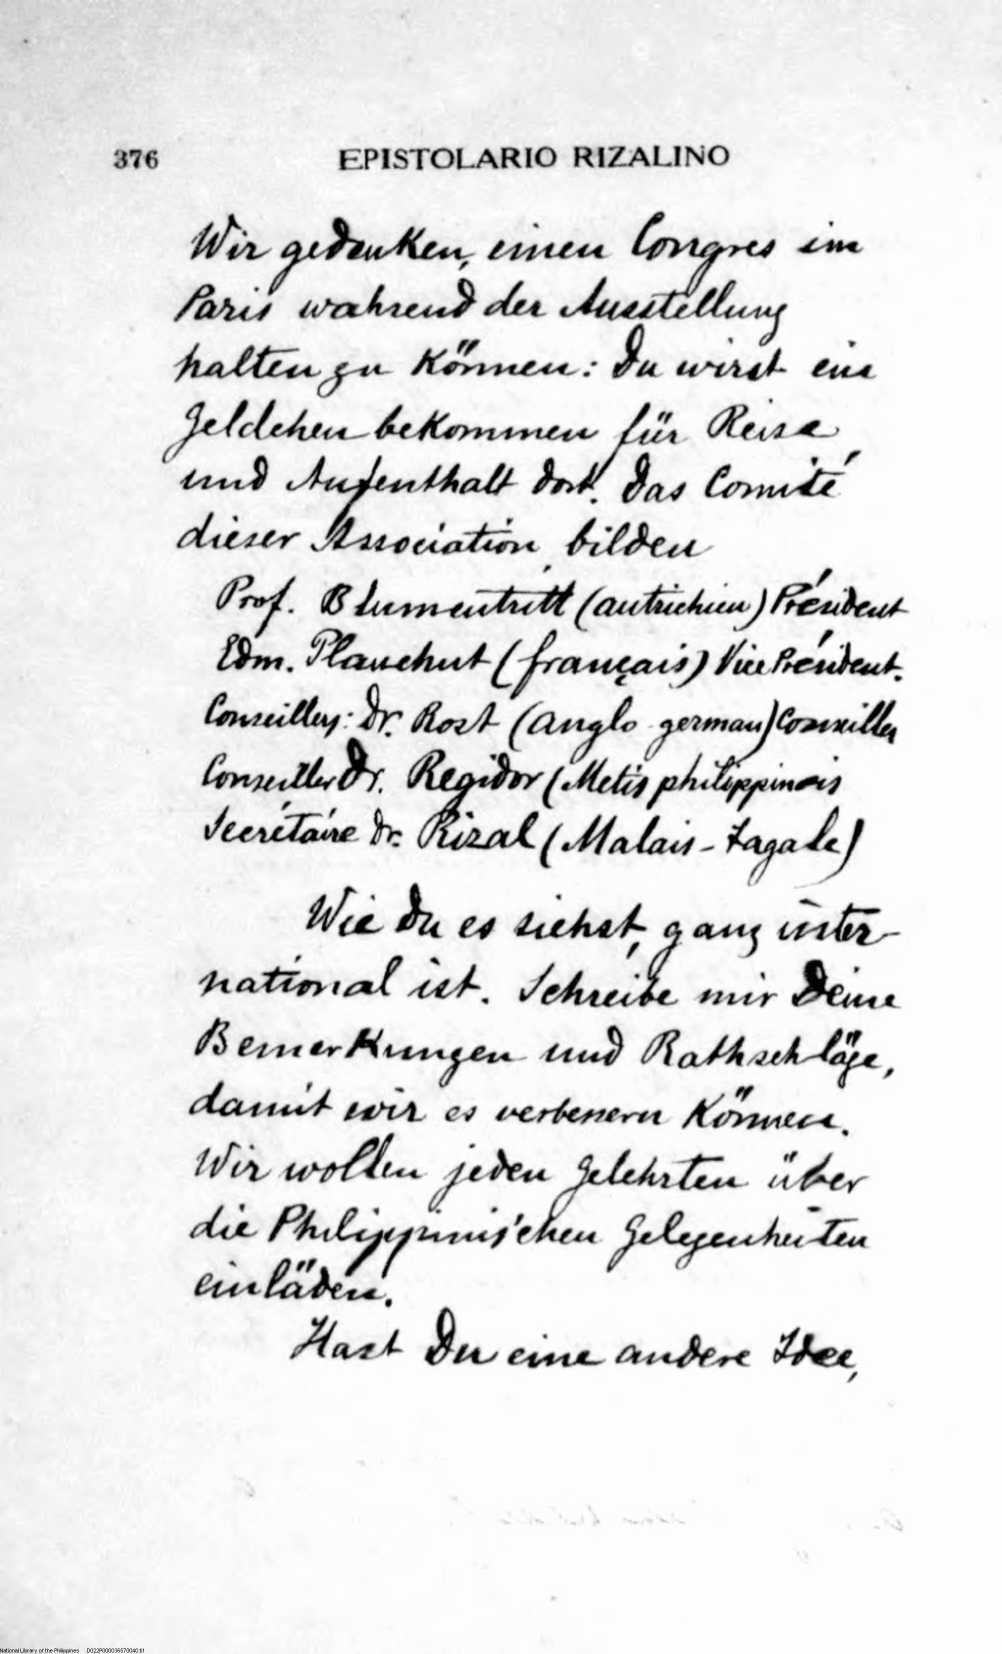 376 EPISTOLARIO RIZALINO
Wir gedenken, einen Congres im
Paris wahrend der Ausstellung
halten zu können: Du wirst ein
Geldchen bekommen für Reise,
und Aufenthalt dort. Das Comité
dieser Association bilden
Prof. Blumentritt (autrichien) Président
Edm. Plauchut (français) Vice Président.
Conseillers: Dr. Rost (anglo-german) Conseiller
Conseiller Dr. Regidor (Metis philippinois
Secrétaire Dr. Rizal (Malais-Tagale)
Wie du es siehst, ganz inter-
national ist. Schreibe mir Deine
Bemerkungen und Rathschläge,
damit wir es verbessern können.
Wir wollen jeden Gelehrten über
die Philippinischen Gelegenheiten
einläden.
Hast Du eine andere Idee,
National Library of the Philippines